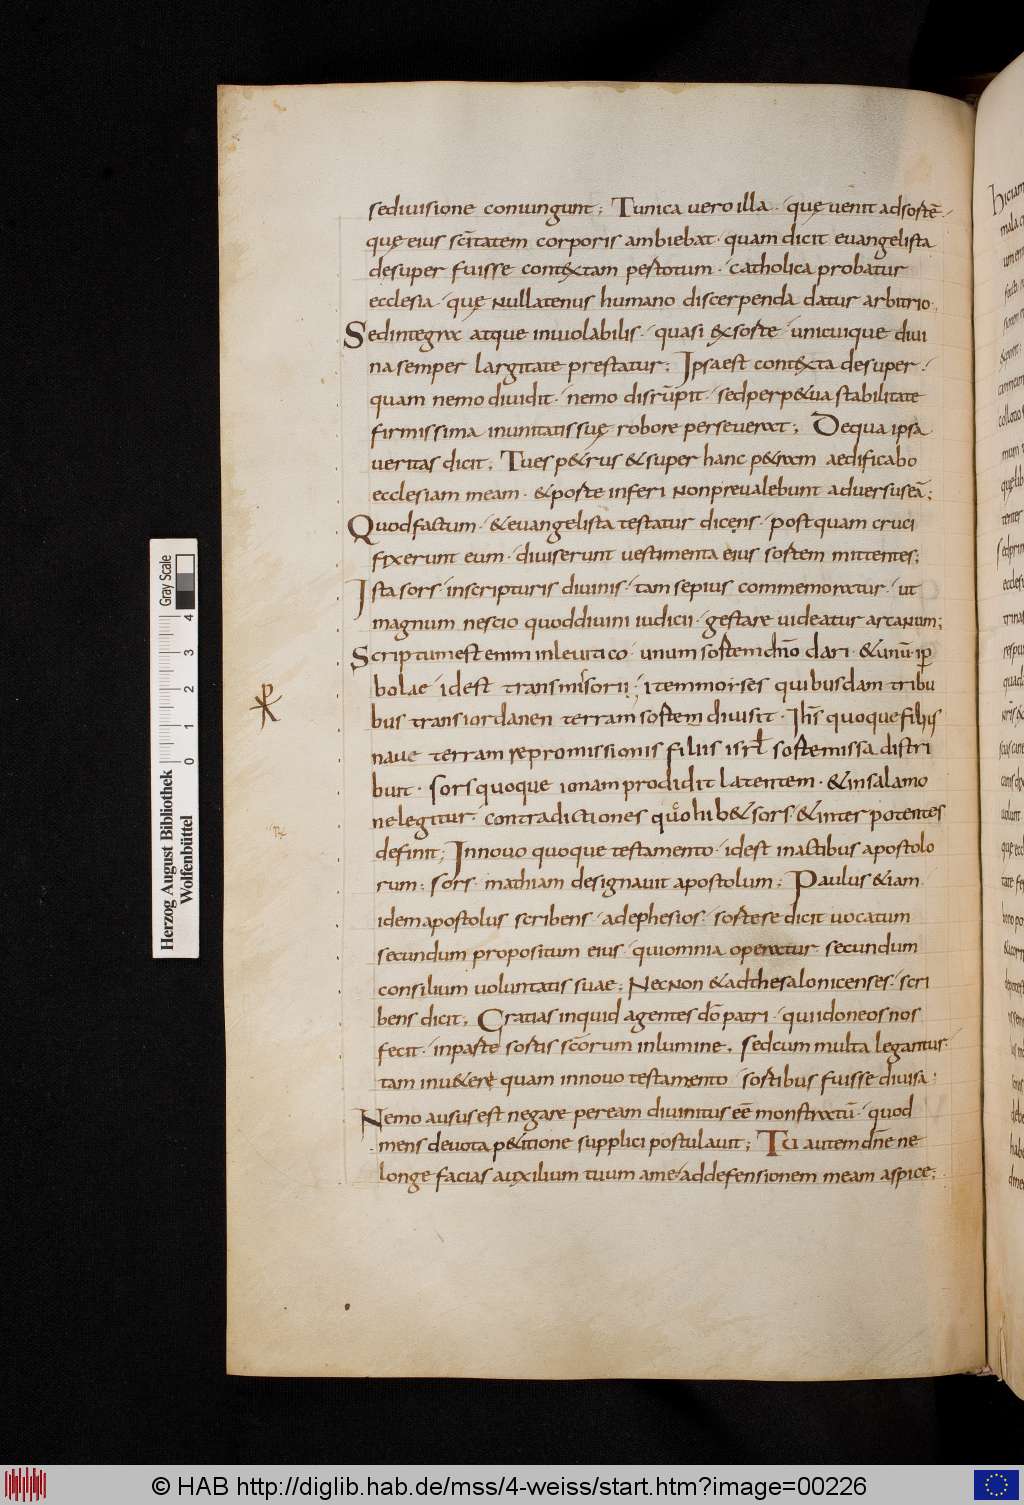 sedivisione coniungunt; Tunica vero illa · quę venit adsortē ·
quę eius sc̄itatem corporis ambiebat · quam dicit evangelista
desuper fuisse cont&xtam pertotum · catholica probatur
ecclesia · quę nullatenus humano discerpenda datur arbitrio ·
Sedintegra atque inviolabilis · quasi exsorte · unicuique divi
na semper largitate prestatur; Ipsa est cont&xta desuper ·
quam nemo dividit · nemo disrūpit · sedperp&ua stabilitate
firmissima inunitatis suę robore perseverat; Dequa ipsa
veritas dicit; Tu es p&rus & super hanc p&ram aedificabo
ecclesiam meam · & porte inferi non prevalebunt adversus eā;
Quod factum · & evangelista testatur dicens · postquam cruci
fixerunt eum · diviserunt vestimenta eius sortem mittentes;
Ista sors · inscripturis divinis · tam sepius commemoratur · ut
magnum nescio quod divini iudicii · gestare videatur arcanum;
Scriptum est enim inlevitico · unum sortem dn̄o dari · & unū ·
bolae · idest transmisorii; item morses quibusdam tribu
bus transiordanen terram sortem divisit · Ih̄s quoque filius
nave terram repromissionis filiis isrl̄ sorte missa distri
buit · sors quoque ionam prodidit latentem · & insalamo
ne legitur · contradictiones quohib& sors · & inter potentes
definit; In novo quoque testamento · idest inactibus apostolo
rum; sors mathiam designavit apostolum; Paulus & iam
idem apostolus scribens · ad ephesios · sorte se dicit vocatum
secundum propositum eius · qui omnia operatur secundum
consilium voluntatis suae; Necnon & ad thesalonicenses · scri
bens dicit; Gratias inquid agentes dō patri · qui idoneos nos
fecit · inparte sortis sc̄orum inlumine; sed cum multa legantur
tam inv&ere quam in novo testamento sortibus fuisse divisa;
Nemo ausus est negare per eam divinitus eē monstratū · quod
mens devota p&itione supplici postulavit; Tu autem dn̄e ne
longe facias auxilium tuum a me · ad defensionem meam aspice;
Gray Scale
4
3
2
1
0
Herzog August Bibliothek
Wolfenbüttel
© HAB http://diglib.hab.de/mss/4-weiss/start.htm?image=00226